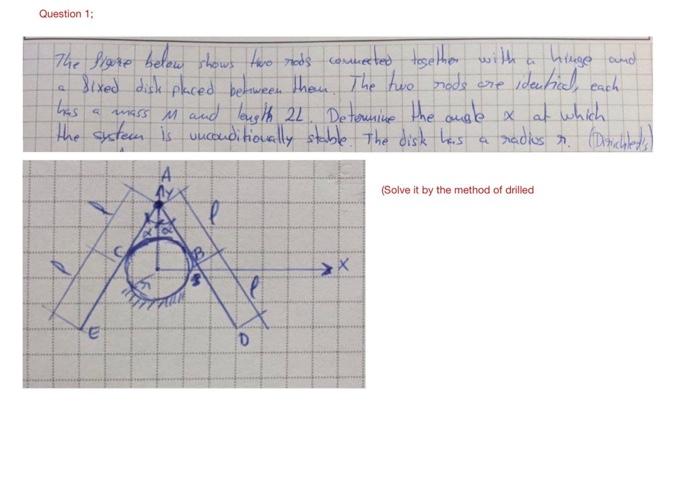 Question 1;
The figure below shows two rods connected together with a hinge and
a fixed disk placed between them. The two rods are identical, each
has a mass M and length 2L. Determine the angle α at which
the system is unconditionally stable. The disk has a radius r. (Dirichlet's)
A
y
l
l
α α
C
B
(Solve it by the method of drilled
x
r
l
E
D